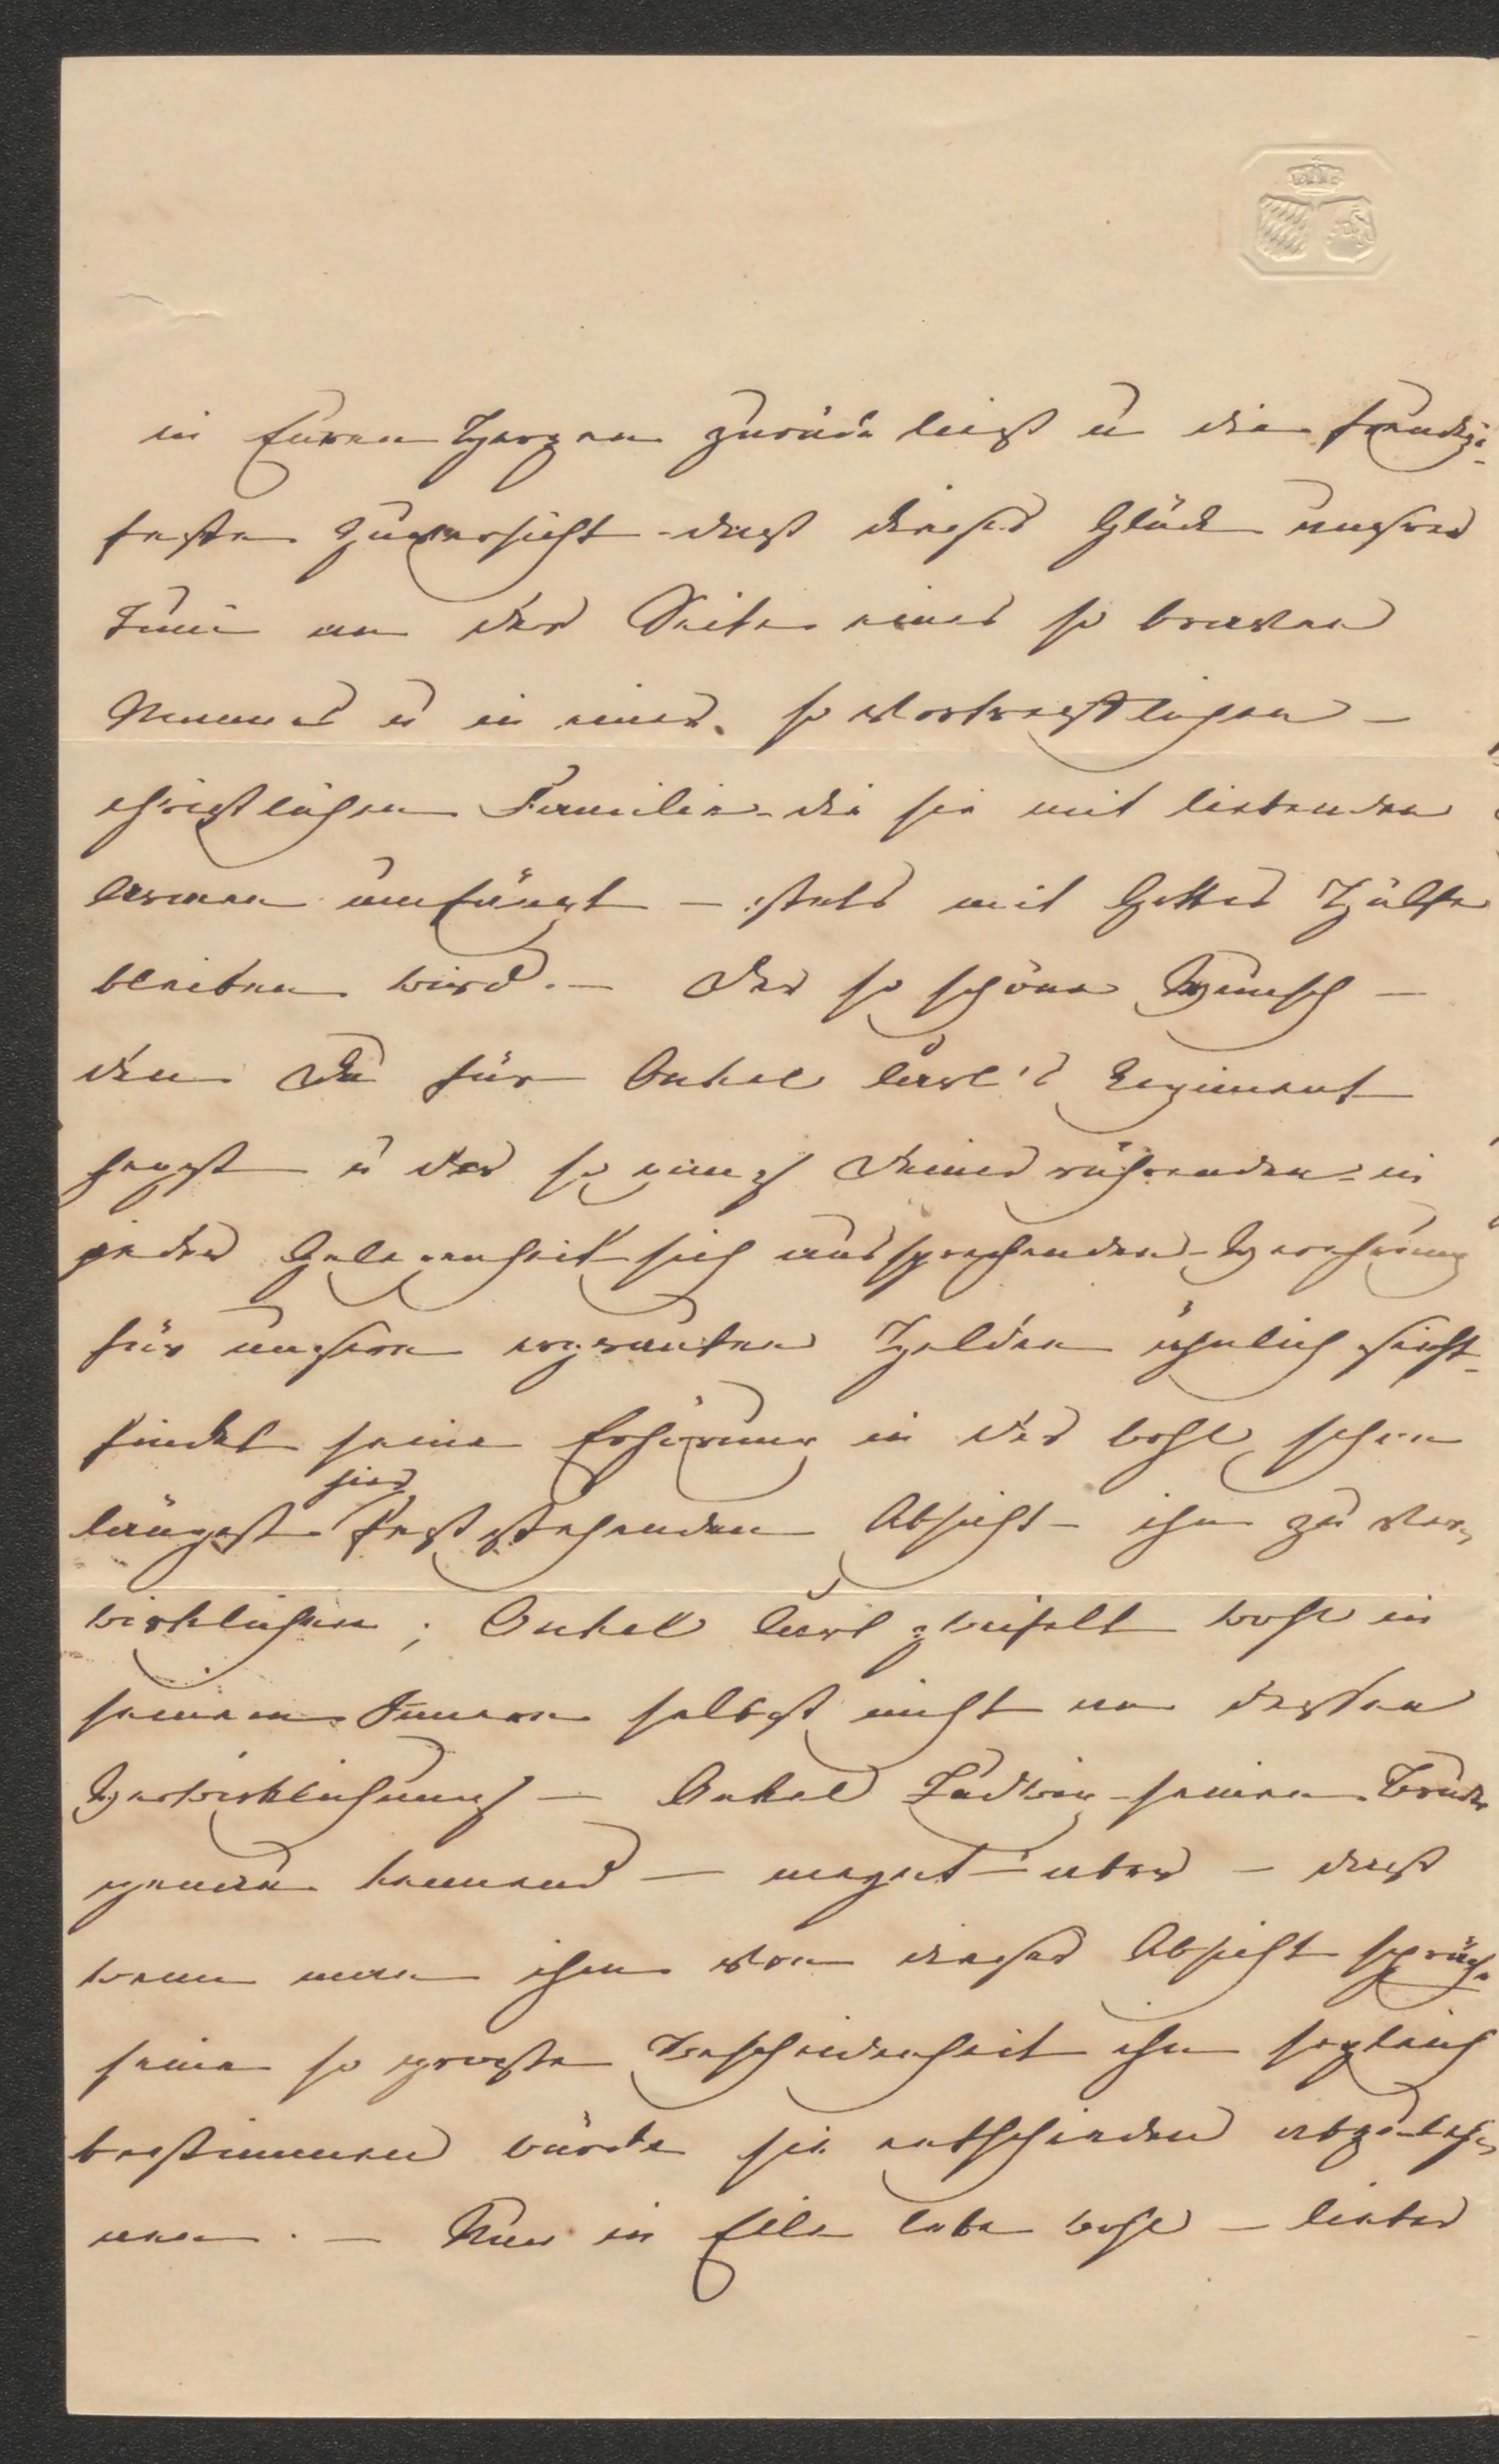 in Euren Herzen zurück liesß u die freudig-
festen Zuversicht - dasß dießes Glück unsßrer
an der Seite eines so braven
Mannes u in einer so vortreffᵗlichen -
christlichen Familie - die sie mit liebenden
Armen umfängt - stets mit Gottes Hülfe
bleiben wird. - Der so schöne Wunsch -
den Du für Onkel Carl's Regiment
hegst u der so ganz Deiner rührenden - in
jeder Gelegenheit sich aussprechenden - Verehrung
für unßern ergrauten Helden ähnlich sieht -
findet seine Erhörung in der wohl schon
längst hier festßstehenden Absicht - ihn zu ver-
wirklichen; Onkel Carl zweifelt wohl in
seinem Innern selbst nicht an dessen
Verwirklichung - Onkel Ludwig - seinen Bruder
genau kennend - meynt aber - dasß
wenn man ihm von dießer Absicht spräche
seine so große Bescheidenheit ihn sogleich
bestimmen würde sie entschieden abzuleh-
nen. - Nun in Eile lebe wohl - lieber